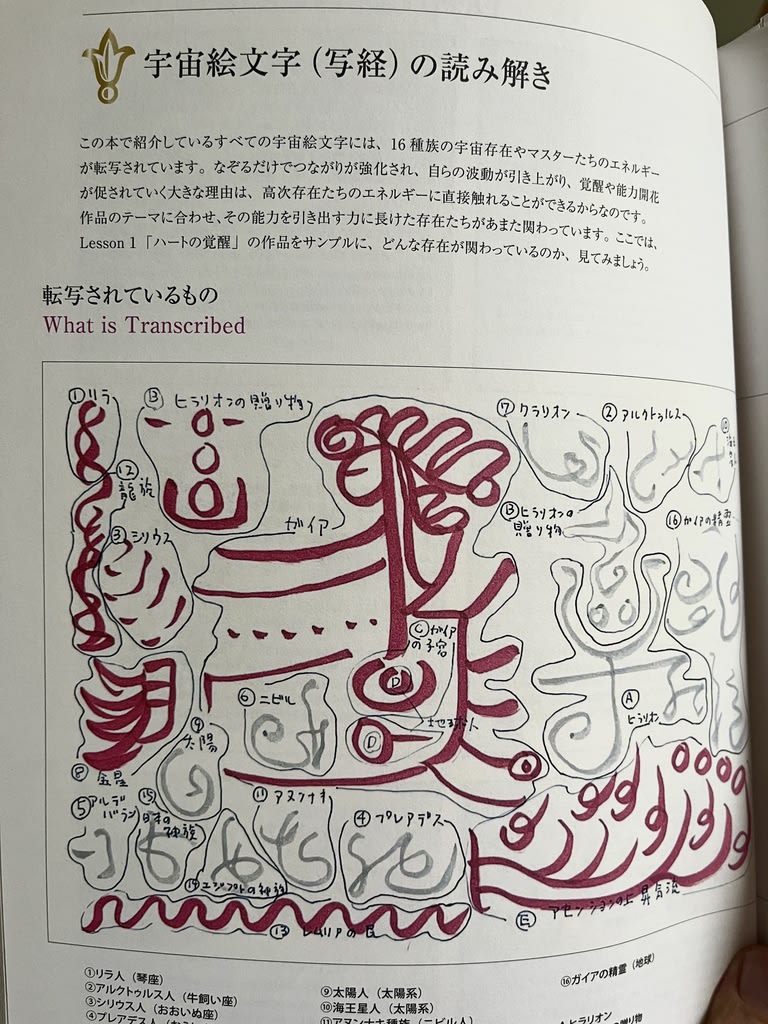 宇宙絵文字（写経）の読み解き
この本で紹介しているすべての宇宙絵文字には、16種族の宇宙存在やマスターたちのエネルギー
が転写されています。なぞるだけでつながりが強化され、自らの波動が引き上がり、覚醒や能力開花
が促されていく大きな理由は、高次存在たちのエネルギーに直接触れることができるからなのです。
作品のテーマに合わせ、その能力を引き出す力に長けた存在たちがあまた関わっています。ここでは、
Lesson 1「ハートの覚醒」の作品をサンプルに、どんな存在が関わっているのか、見てみましょう。
転写されているもの
What is Transcribed
①リラ
⑬ヒラリオンの贈り物
⑦クラリオン
②アルクトゥルス
⑩
⑫
龍族
③シリウス
ガイア
⑬ヒラリオンの
贈り物
⑯ガイアの精霊
Ⓒガイア
の子宮
Ⓓ
Ⓓ
⑥ニビル
Ⓐ
ヒラリオン
⑨
太陽
⑧金星
⑤アルデ
バラン
⑮
日本の
神族
⑪アヌンナキ
④プレアデス
⑭エジプトの神族
⑬レムリアの民
Ⓔアセンションの上昇気流
①リラ人（琴座）
②アルクトゥルス人（牛飼い座）
③シリウス人（おおいぬ座）
④プレアデス人
⑨太陽人（太陽系）
⑩海王星人（太陽系）
⑪アヌンナキ種族（ニビル人）
⑯ガイアの精霊（地球）
ヒラリオン
の贈り物